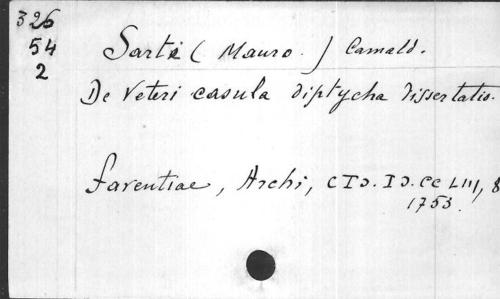 326
54
2
Sarti ( Mauro. ) Camald.
De Veteri casula diptycha dissertatio.
Faventiae, Archi, CIↃ.IↃ.CC LIII, 8
1753.